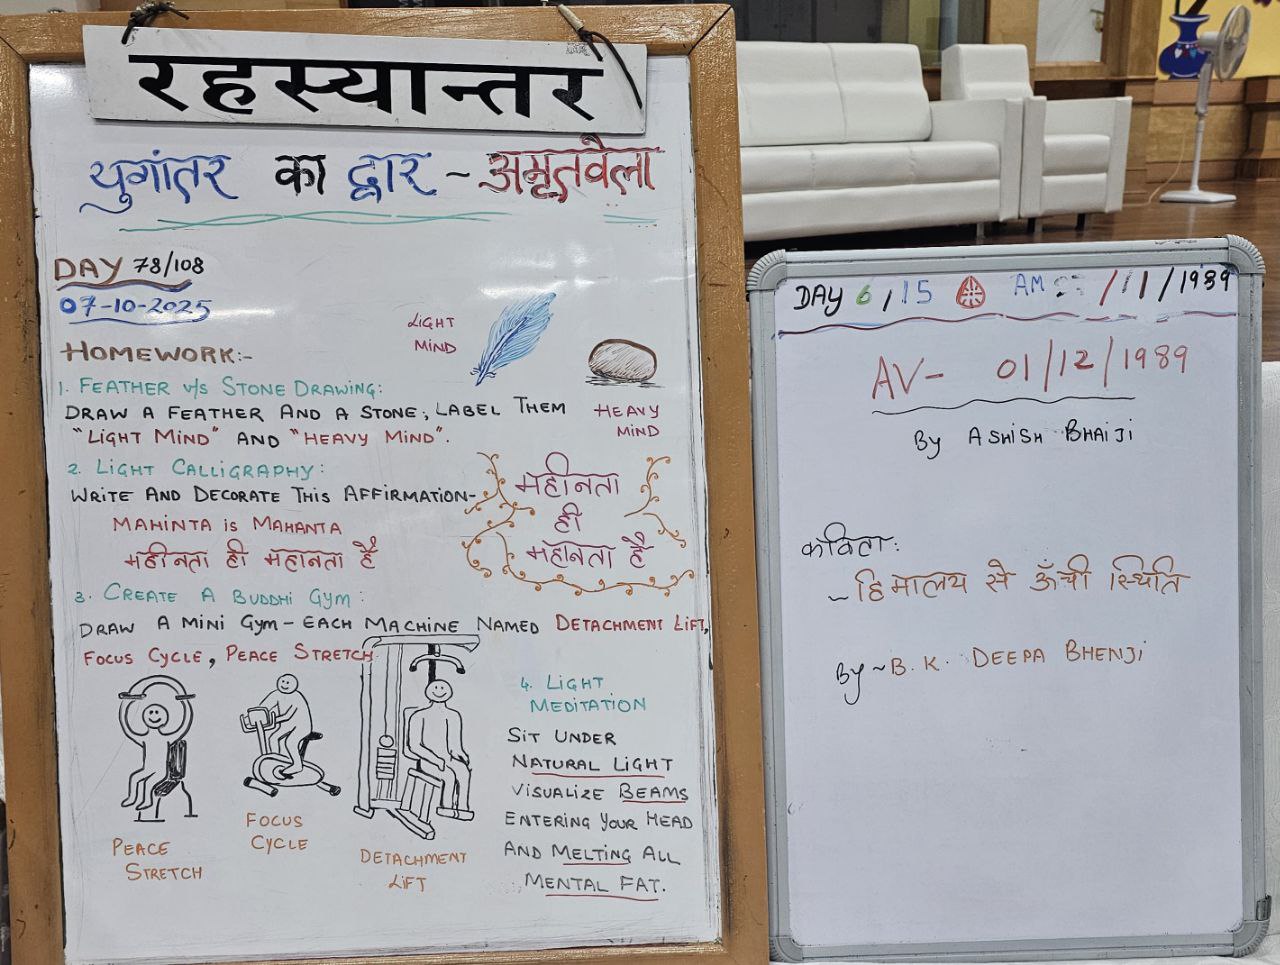 रहस्यान्तर
युगांतर का द्वार ~ अमृतवेला
DAY 78/108
07-10-2025
HOMEWORK:-
LIGHT
MIND
1. FEATHER V/S STONE DRAWING:
DRAW A FEATHER AND A STONE, LABEL THEM
"LIGHT MIND" AND "HEAVY MIND".
HEAVY
MIND
2. LIGHT CALLIGRAPHY:
WRITE AND DECORATE THIS AFFIRMATION-
MAHINTA is MAHANTA
महीनता ही महानता है
महीनता
ही
महानता है
3. CREATE A BUDDHI GYM:
DRAW A MINI GYM - EACH MACHINE NAMED DETACHMENT LIFT,
FOCUS CYCLE, PEACE STRETCH
PEACE
STRETCH
FOCUS
CYCLE
DETACHMENT
LIFT
4. LIGHT
MEDITATION
SIT UNDER
NATURAL LIGHT
VISUALIZE BEAMS
ENTERING YOUR HEAD
AND MELTING ALL
MENTAL FAT.
DAY 6,15 AM /11/1989
AV- 01/12/1989
By ASHISH BHAIJI
कविता:
~ हिमालय से ऊँची स्थिति
By ~ B.K. DEEPA BHENJI